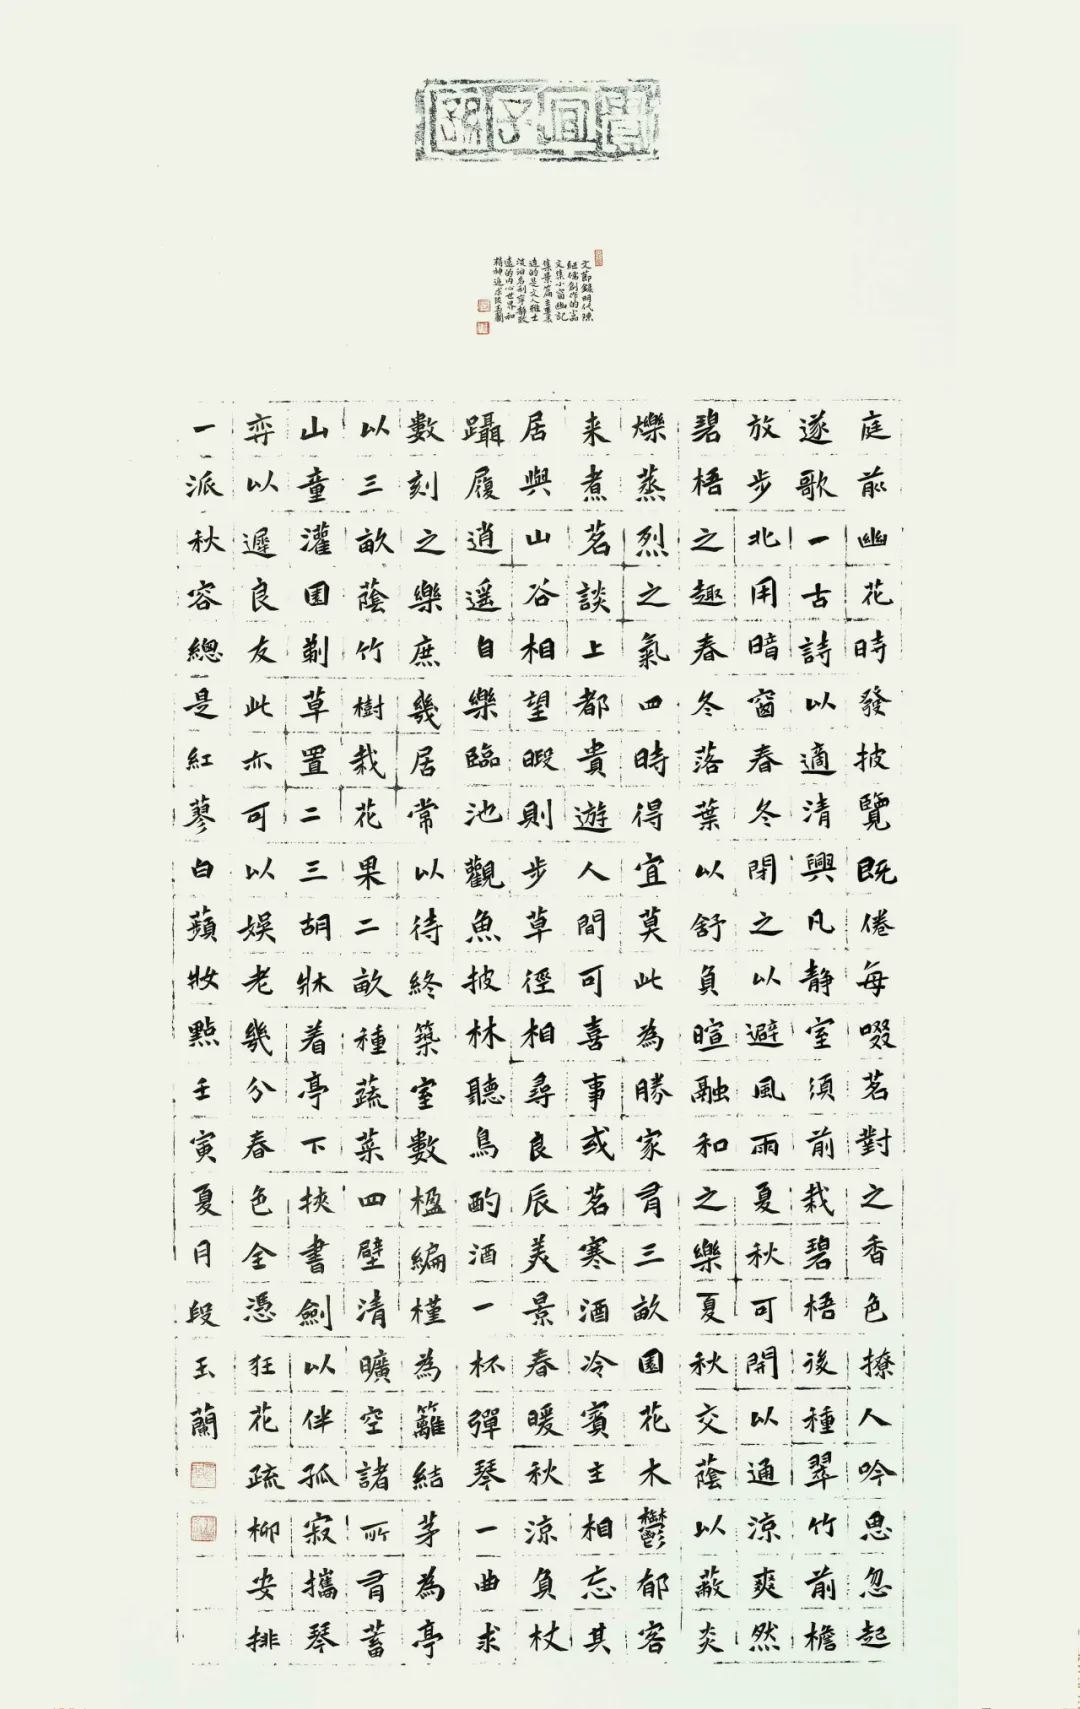 富宜子孫
文節錄明代陳
繼儒創作的小品
文集小窗幽記
集景篇主要表
達的是文人雅士
淡泊名利寧靜致
遠的内心世界和
精神追求段玉蘭
庭前幽花時發披覽既倦每啜茗對之香色撩人吟思忽起
遂歌一古詩以適清興凡静室須前栽碧梧後種翠竹前檐
放步北用暗窗春冬閉之以避風雨夏秋可開以通涼爽然
碧梧之趣春冬落葉以舒負暄融和之樂夏秋交蔭以蔽炎
爍蒸烈之氣四時得宜莫此為勝家有三畝園花木鬱郁客
来煮茗談上都貴遊人間可喜事或茗寒酒冷賓主相忘其
居與山谷相望暇則步草徑相尋良辰美景春暖秋涼負杖
躡履逍遥自樂臨池觀魚披林聽鳥酌酒一杯彈琴一曲求
數刻之樂庶幾居常以待終築室數楹編槿為籬結茅為亭
以三畝蔭竹樹栽花果二畝種蔬菜四壁清曠空諸所有蓄
山童灌園薙草置二三胡牀着亭下挾書劍以伴孤寂攜琴
弈以遲良友此亦可以娱老幾分春色全憑狂花疏柳安排
一派秋容總是紅蓼白蘋妝點壬寅夏月段玉蘭